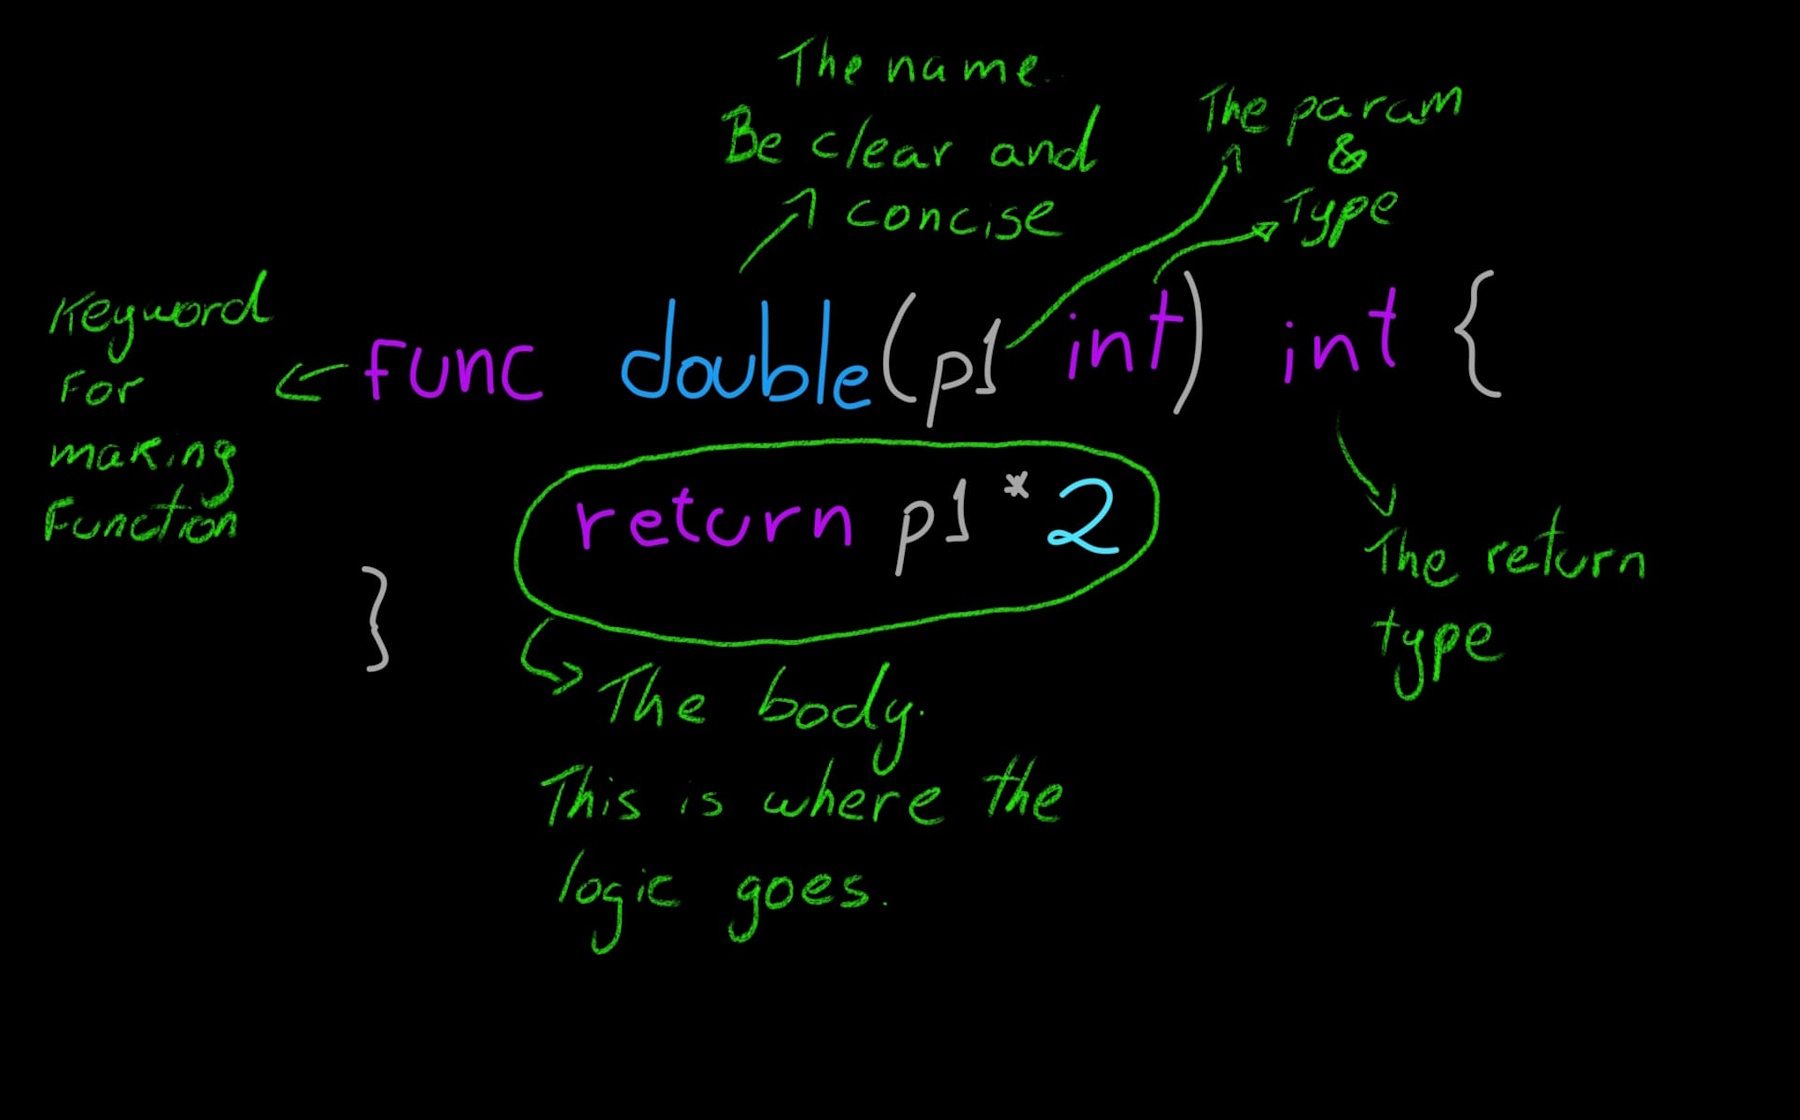 The name.
Be clear and
concise
The param
&
Type
Keyword
For
making
Function
func double(p1 int) int {
return p1 * 2
}
The return
type
The body.
This is where the
logic goes.